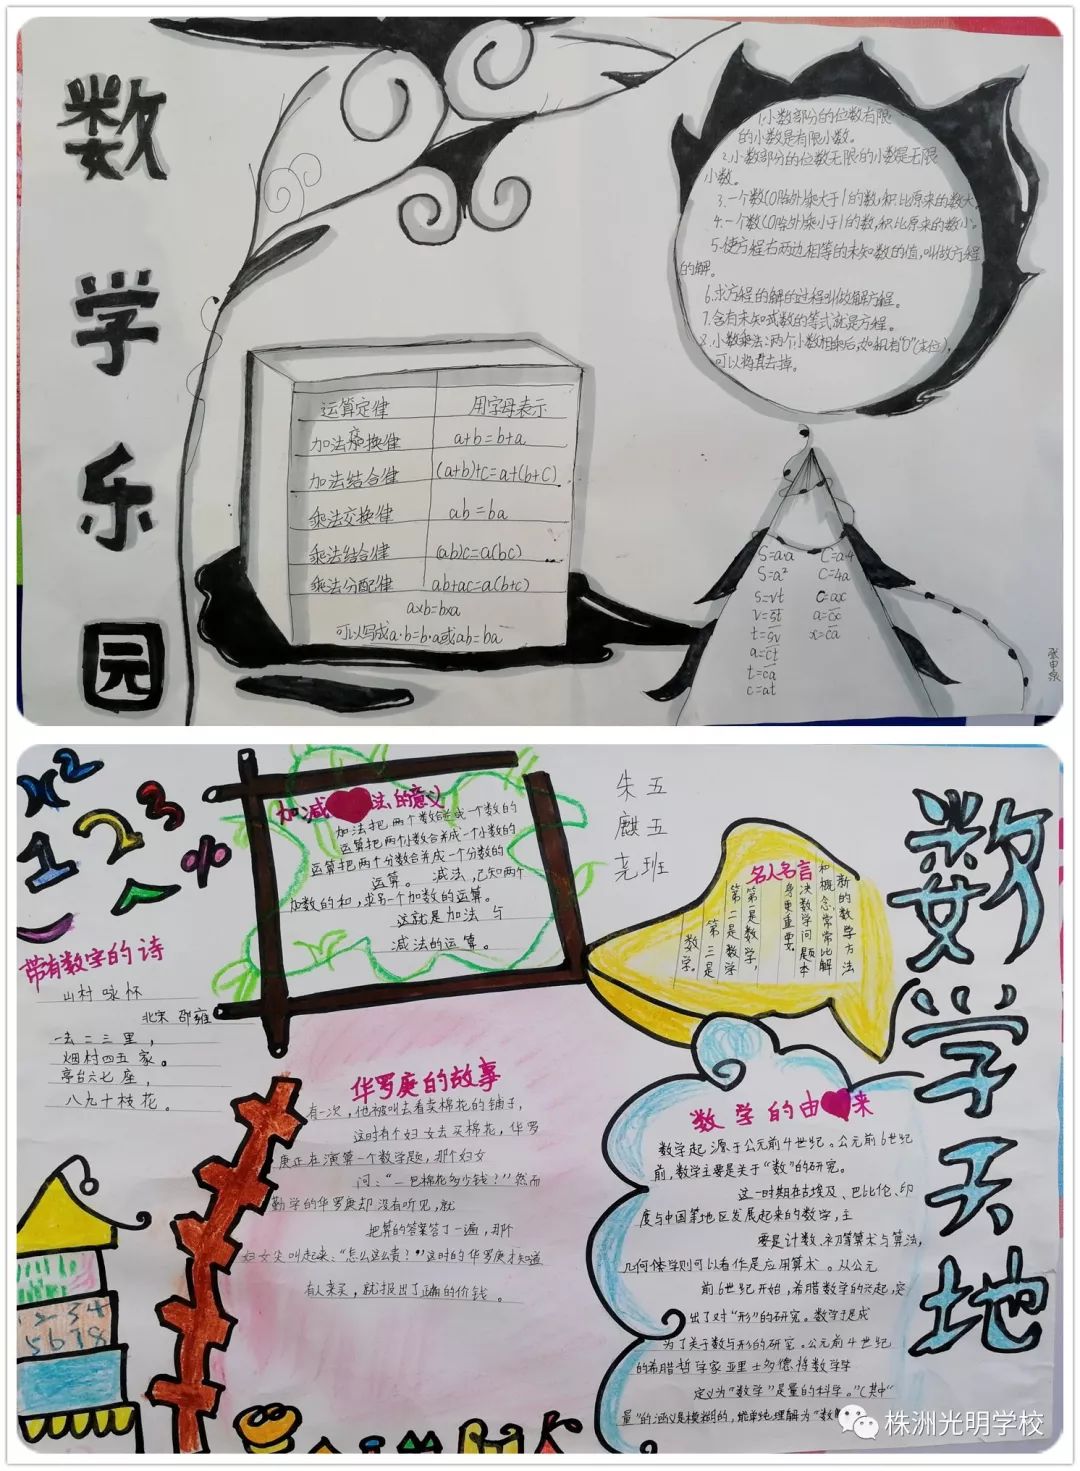 数学乐园
1.小数部分的位数有限
的小数是有限小数。
2.小数部分的位数无限的小数是无限
小数。
3.一个数(0除外)乘大于1的数,积比原来的数大。
4.一个数(0除外)乘小于1的数,积比原来的数小。
5.使方程右两边相等的未知数的值,叫做方程
的解。
6.求方程的解的过程叫做解方程。
7.含有未知数的等式就是方程。
8.小数乘法:两个小数相乘后,如积有"0"(末位),
可以将其去掉。
运算定律 用字母表示
加法交换律 a+b=b+a
加法结合律 (a+b)+c=a+(b+c)
乘法交换律 ab=ba
乘法结合律 (ab)c=a(bc)
乘法分配律 ab+ac=a(b+c)
a×b=b×a
可以写成a·b=b·a或ab=ba
S=a·a C=a·4
S=a² C=4a
S=vt C=ax
a=ct
c=at
数学天地
朱麒尧
五五班
加减法的意义
加法把两个数合并成一个数的
运算把两个小数合并成一个小数的
运算把两个分数合并成一个分数的
运算。 减法,已知两个
加数的和,求另一个加数的运算。
这就是加法 与
减法的运算。
名人名言
新的数学方法
和概念,常常比解
决数学问题本
身更重要。
第一是数学,
第二是数学
第三是
数学。
带有数字的诗
山村咏怀
北宋 邵雍
一去二三里,
烟村四五家。
亭台六七座,
八九十枝花。
华罗庚的故事
有一次,他被叫去看卖棉花的铺子,
这时有个妇女去买棉花,华罗
庚正在演算一个数学题,那个妇女
问:"一包棉花多少钱?"然而
勤学的华罗庚却没有听见,就
把算的答案答了一遍,那个
妇女尖叫起来:"怎么这么贵?"这时的华罗庚才知道
有人来买,就报出了正确的价钱。
数学的由来
数学起源于公元前4世纪。公元前6世纪
前,数学主要是关于"数"的研究。
这一时期在古埃及、巴比伦、印
度与中国等地区发展起来的数学,主
要是计数、初等算术与算法,
几何学则可以看作是应用算术。从公元
前6世纪开始,希腊数学的兴起,突
出了对"形"的研究。数学于是成
为了关于数与形的研究。公元前4世纪
的希腊哲学家亚里士多德将数学
定义为"数学"是量的科学。"(其中"
量"的涵义是模糊的,
1 2 3
%
2 3 4
5 6 7 8
株洲光明学校